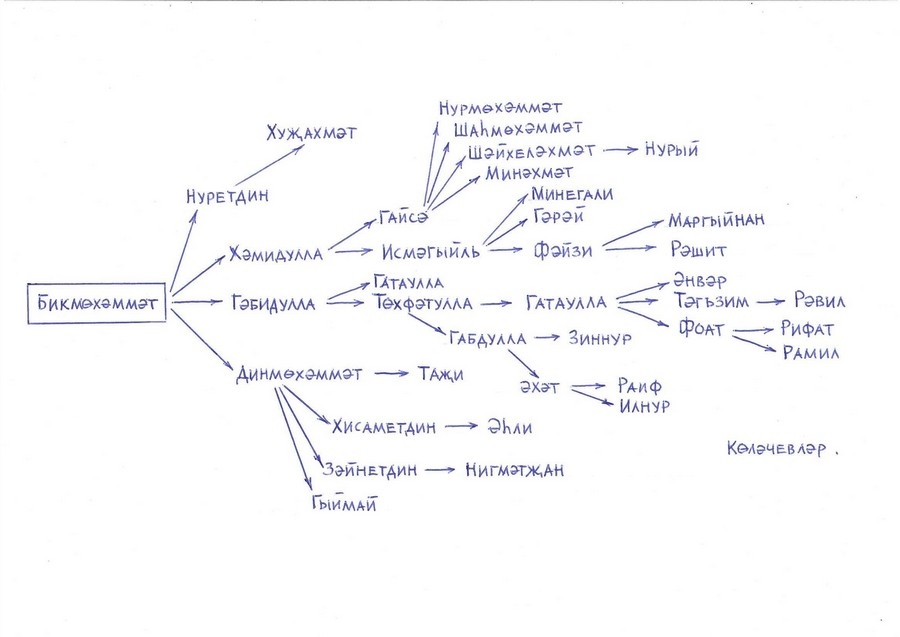 Нурмөхәммәт
Хуҗахмәт
Шаһмөхәммәт
Шәйхеләхмәт
Нурый
Минәхмәт
Нуретдин
Минегали
Гайсә
Гәрәй
Маргыйнан
Хәмидулла
Исмәгыйль
Фәйзи
Рәшит
Гатаулла
Әнвәр
Бикмөхәммәт
Гәбидулла
Төхфәтулла
Гатаулла
Тәгъзим
Рәвил
Фоат
Рифат
Габдулла
Зиннур
Рамил
Динмөхәммәт
Таҗи
Әхәт
Раиф
Илнур
Хисаметдин
Әһли
Көләчевләр.
Зәйнетдин
Нигмәтҗан
Гыймай